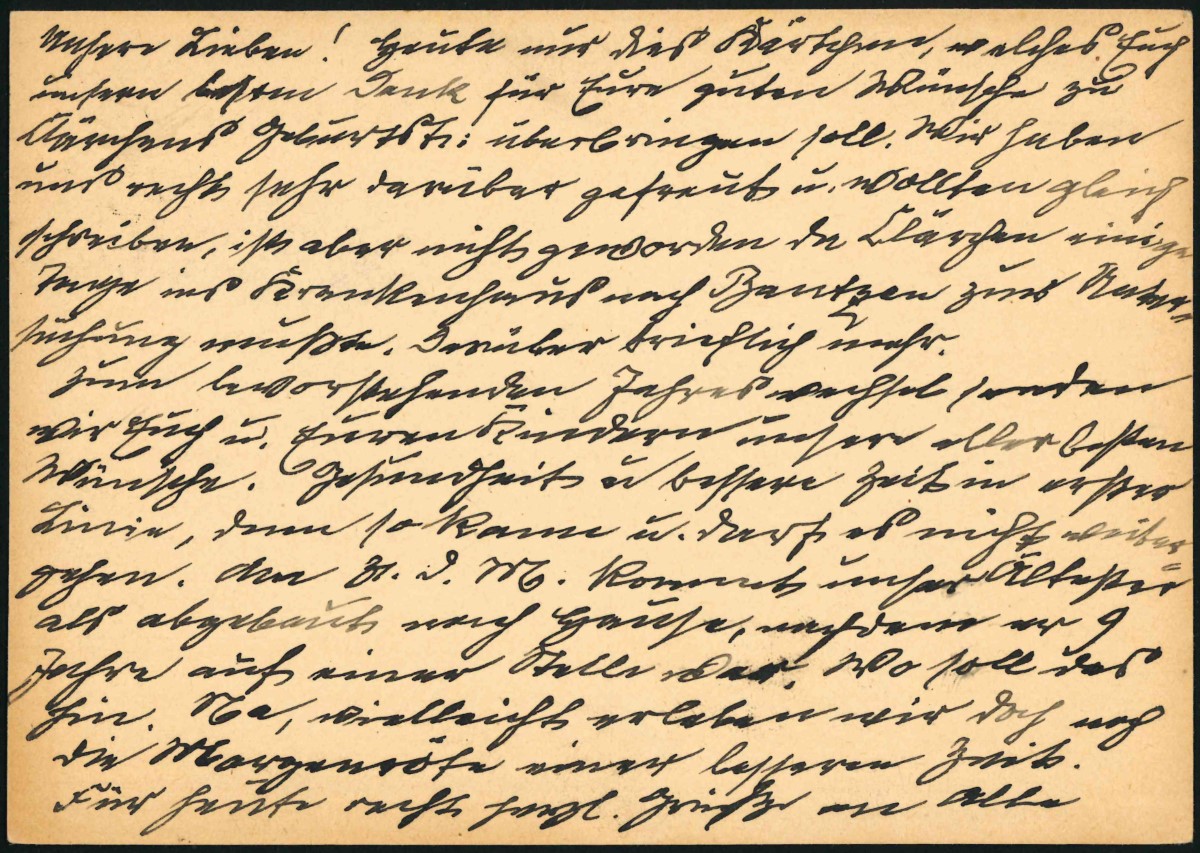 Unsere Lieben! Heute nur dies Kärtchen, welches Euch
unsern besten Dank für Eure guten Wünsche zu
Klärchens Geburtst: überbringen soll. Wir haben
uns recht sehr darüber gefreut u. wollten gleich
schreiben, ist aber nicht geworden da Klärchen einige
Tage ins Krankenhaus nach Bautzen zur Unter-
suchung mußte. Darüber brieflich mehr.
Zum bevorstehenden Jahreswechsel senden
wir Euch u. Euren Kindern unsere allerbesten
Wünsche. Gesundheit u bessere Zeit in erster
Linie, denn so kann u. darf es nicht weiter
gehen. Am 31. d. M. kommt unser Ältester
als abgebaut nach Hause, nachdem er 9
Jahre auf einer Stelle war. Wo soll das
hin. Na, vielleicht erleben wir doch noch
die Morgenröte einer besseren Zeit.
Für heute recht herzl. Grüße an Alle